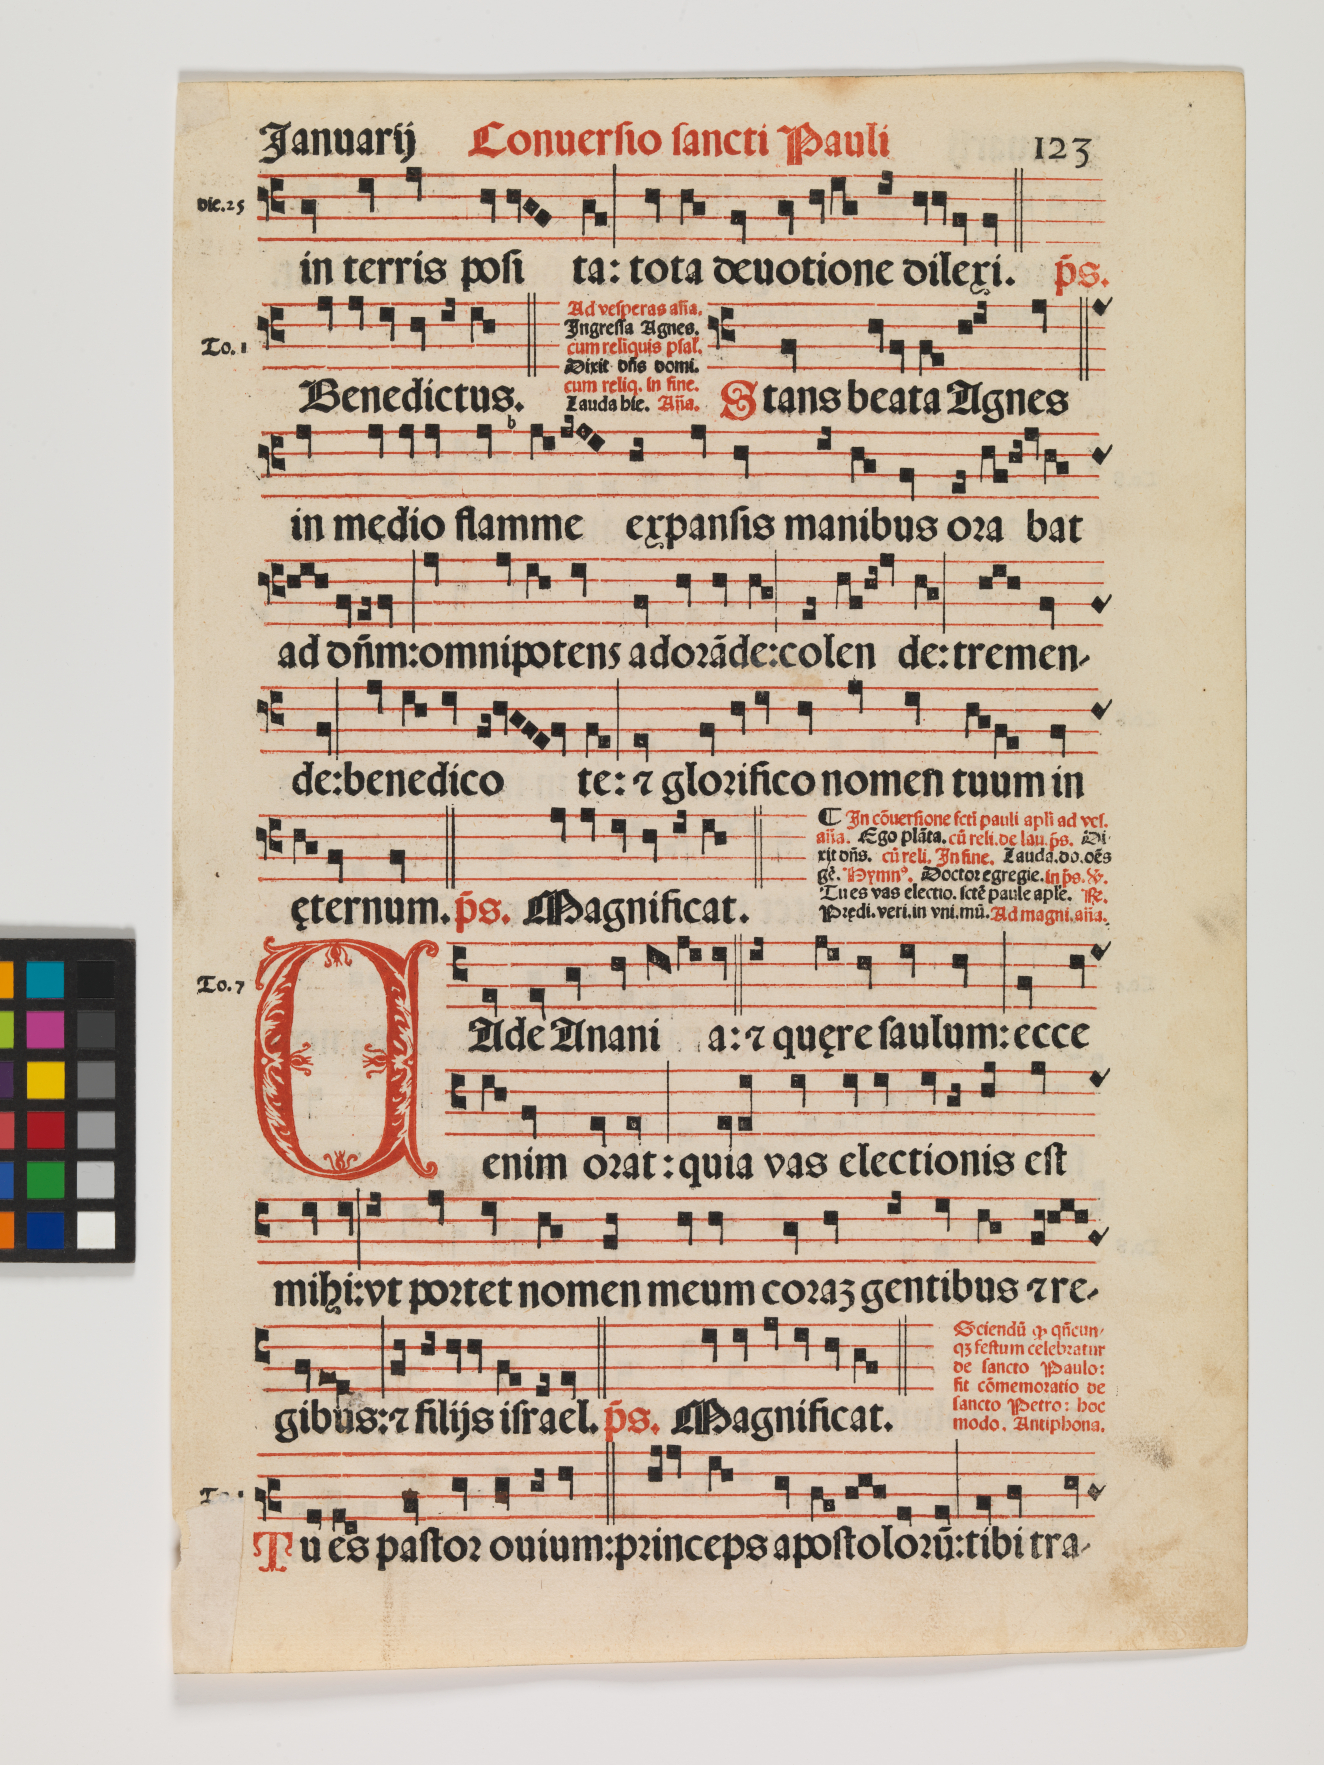 Januarij Conuersio sancti Pauli 123
Die.25
in terris posi ta: tota deuotione dilexi. p̄s.
To.1
Benedictus.
Ad vesperas añа.
Ingressa Agnes.
cum reliquis psal.
Dixit dñs domi.
cum reliq. In fine.
Lauda hie. Aña.
Stans beata Agnes
b
in medio flamme expansis manibus ora bat
ad dñm:omnipotens adorāde:colen de:tremen-
de:benedico te: ⁊ glorifico nomen tuum in
ęternum. p̄s. Magnificat.
¶ In cōuersione scti pauli apli ad ves.
aña. Ego plāta. cū reli. de lau. p̄s. Di-
xit dñs. cū reli. In fine. Lauda.do.oēs
gē. Hymnꝰ. Doctor egregie. in p̄s. ℣.
Tu es vas electio. sctē paule aplē. ℟.
Prędi.veri.in vni.mū. Ad magni.aña.
To.7
VAde Anani a: ⁊ quęre saulum: ecce
enim orat: quia vas electionis est
mihi:vt portet nomen meum coraꝫ gentibus ⁊ re-
gibus: ⁊ filijs israel. p̄s. Magnificat.
Sciendū ꝙ qñcun-
qꝫ festum celebratur
de sancto Paulo:
fit cōmemoratio de
sancto Petro: hoc
modo. Antiphona.
Tu es pastor ouium:princeps apostolorū:tibi tra-